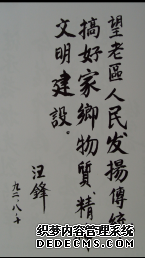 望老區人民发揚傳統
搞好家鄉物質、精
文明建設。
汪鋒
九二.八.十
织梦内容管理系统
DEDECMS.COM